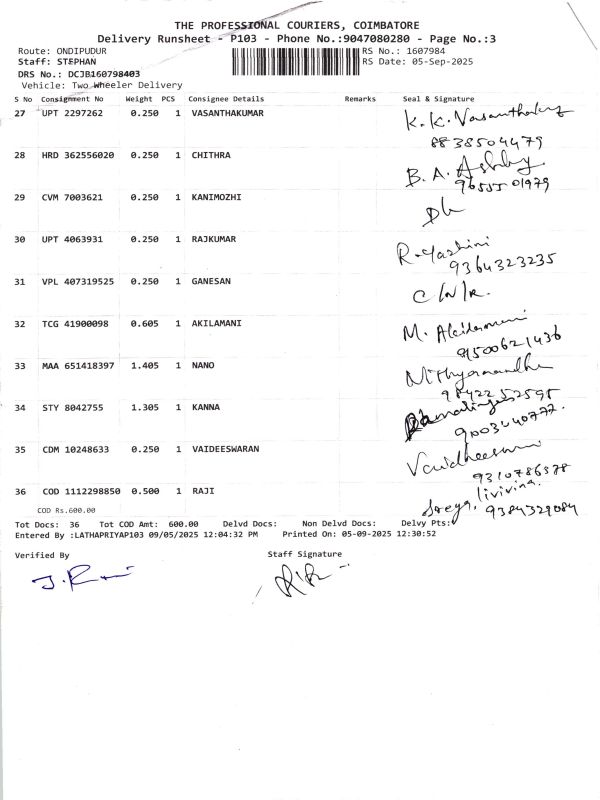 THE PROFESSIONAL COURIERS, COIMBATORE
Delivery Runsheet - P103 - Phone No.:9047080280 - Page No.:3
Route: ONDIPUDUR RS No.: 1607984
Staff: STEPHAN RS Date: 05-Sep-2025
DRS No.: DCJB160798403
Vehicle: Two Wheeler Delivery
S No Consignment No Weight PCS Consignee Details Remarks Seal & Signature
27 UPT 2297262 0.250 1 VASANTHAKUMAR K.K. Vasanthakumar
8838504479
28 HRD 362556020 0.250 1 CHITHRA B.A.
9655501979
29 CVM 7003621 0.250 1 KANIMOZHI
30 UPT 4063931 0.250 1 RAJKUMAR R. Yazhini
9364323235
31 VPL 407319525 0.250 1 GANESAN C/N/R.
32 TCG 41900098 0.605 1 AKILAMANI M.
9500621436
33 MAA 651418397 1.405 1 NANO Nithyanandha
9842252595
34 STY 8042755 1.305 1 KANNA
9003440777.
35 CDM 10248633 0.250 1 VAIDEESWARAN Vaidheeswari
9310786578
36 COD 1112298850 0.500 1 RAJI
9384329084
COD Rs.600.00
Tot Docs: 36 Tot COD Amt: 600.00 Delvd Docs: Non Delvd Docs: Delvy Pts:
Entered By :LATHAPRIYAP103 09/05/2025 12:04:32 PM Printed On: 05-09-2025 12:30:52
Verified By Staff Signature